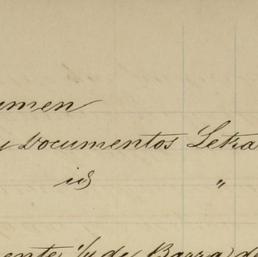 umen
y Documentos Letra
id "
ente de Barra de